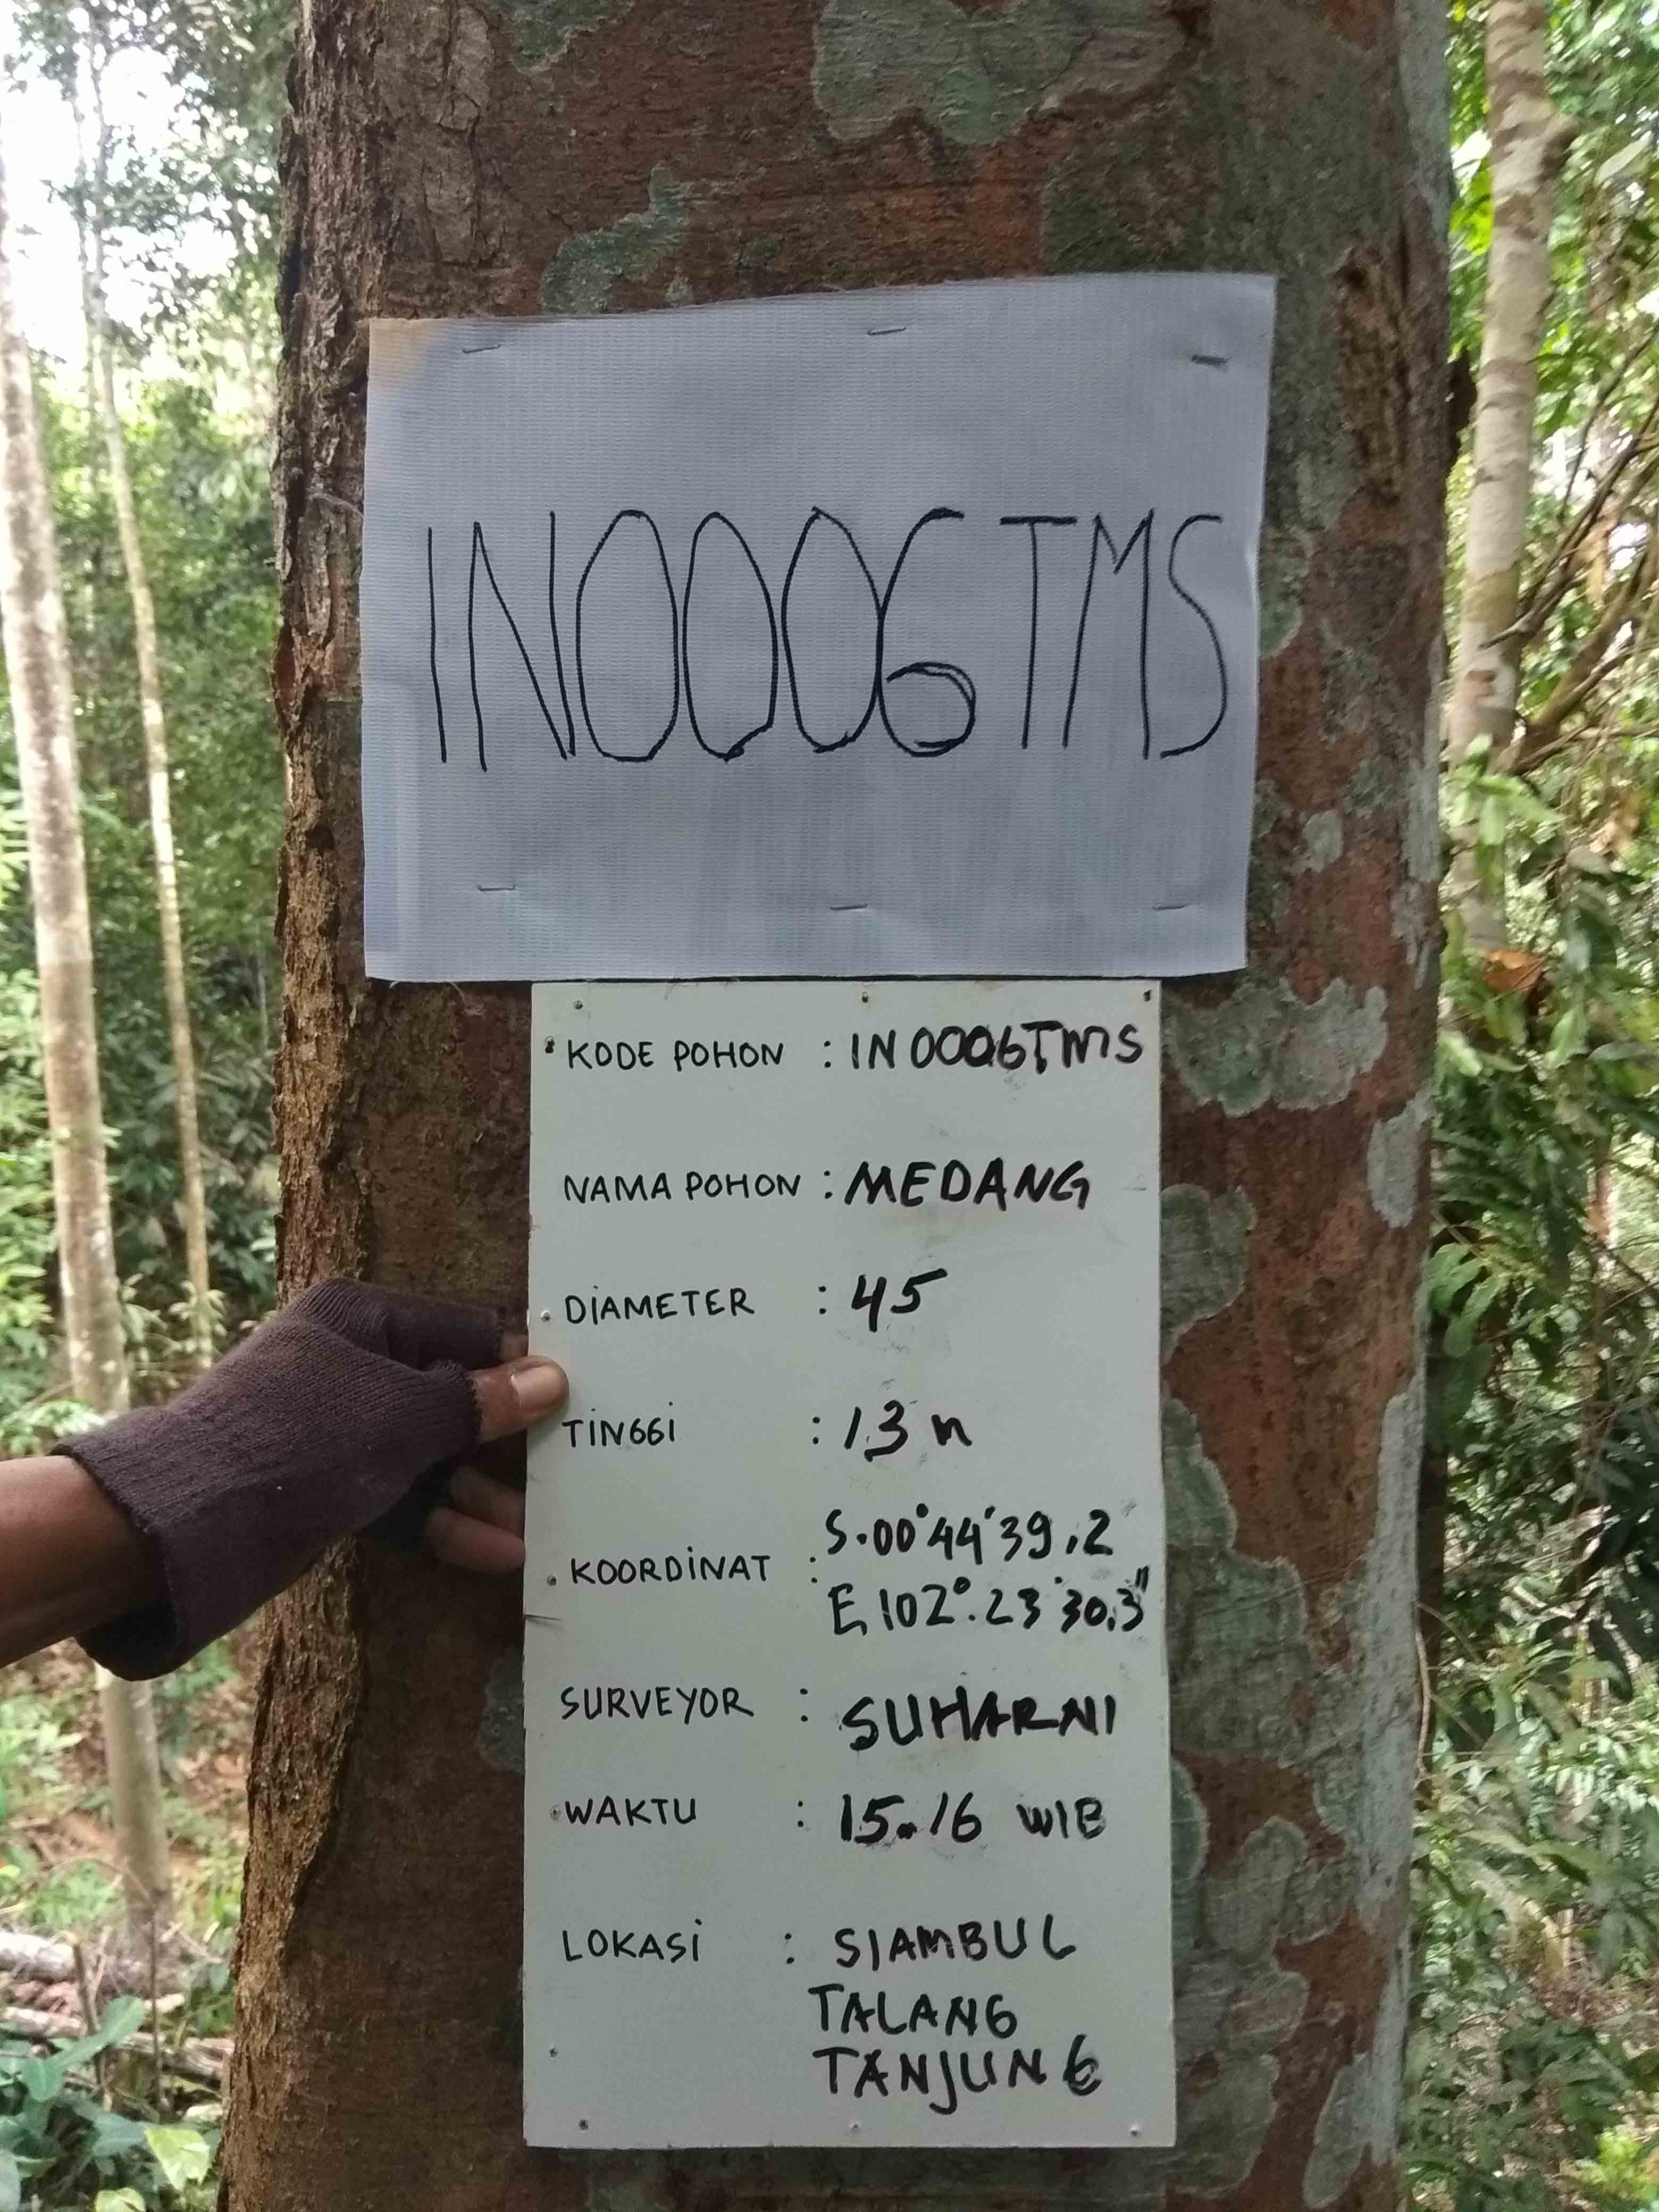 IN0006TMS
KODE POHON : IN0006TMS
NAMA POHON : MEDANG
DIAMETER : 45
TINGGI : 13 m
KOORDINAT : S.00°44'39,2
E 102°.23'30.3"
SURVEYOR : SUHARNI
WAKTU : 15.16 WIB
LOKASI : SIAMBUL
TALANG
TANJUNG